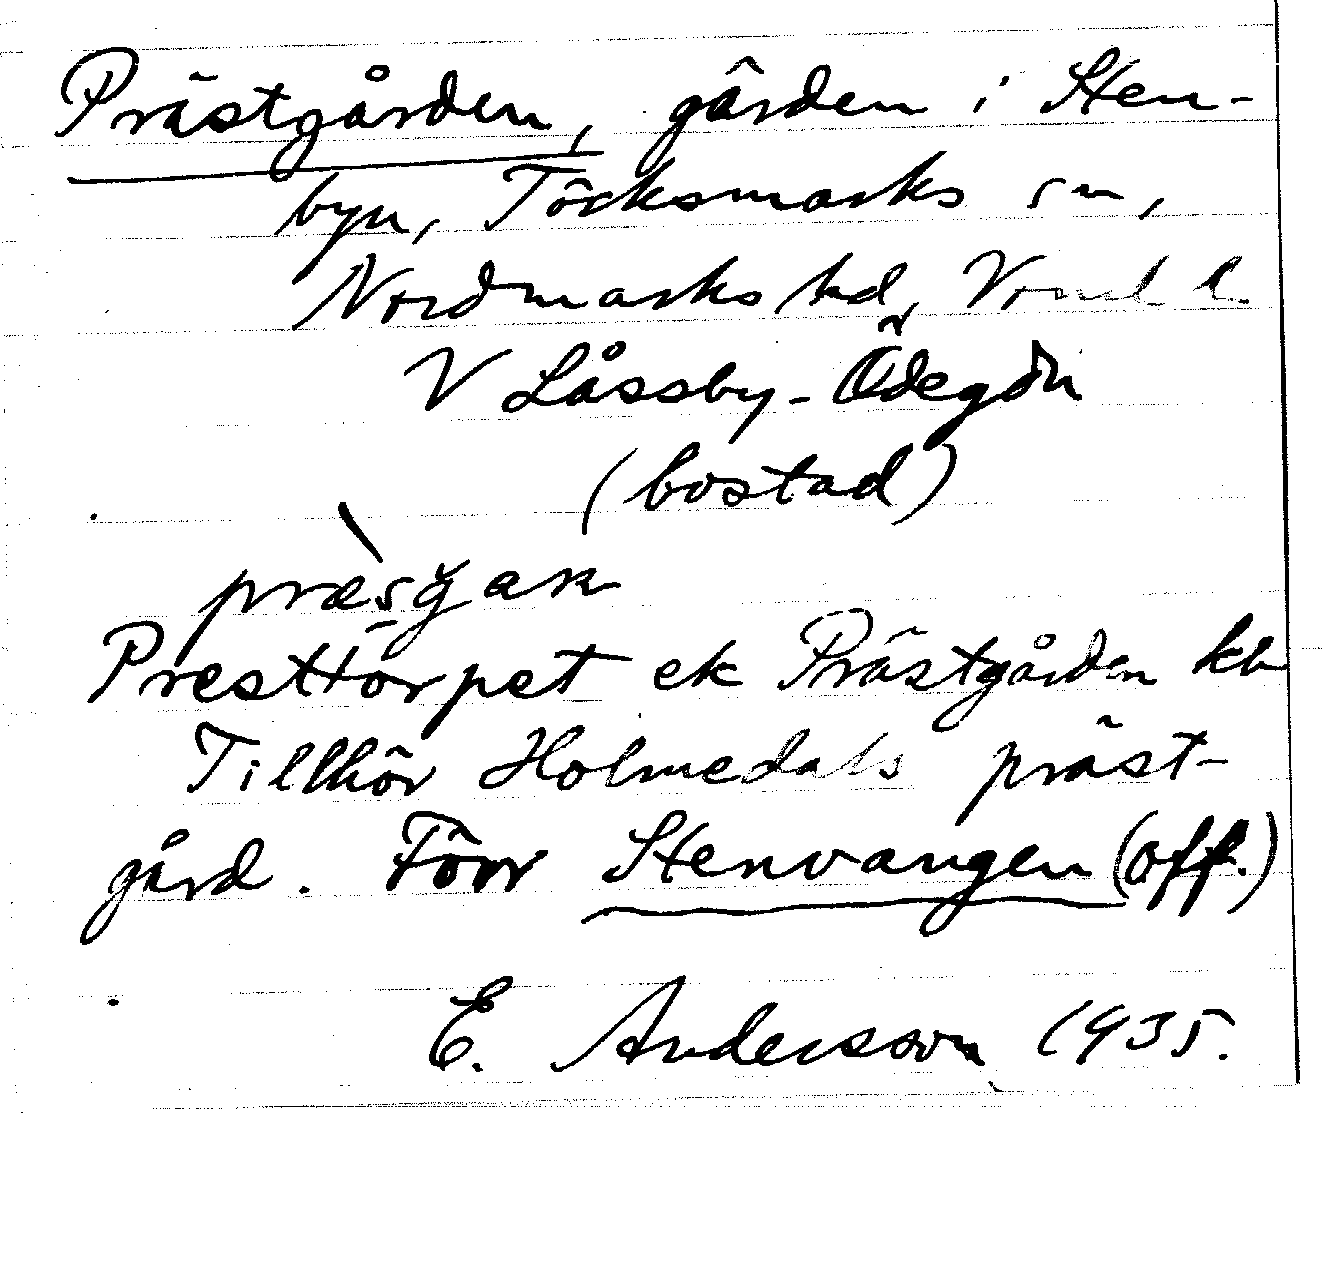 Prästgården, gården i Sten-
byn, Töcksmarks sn,
Nordmarks hd, Vrml l.
V Låssby-Ödegdn
(bostad)
Presttorpet ek Prästgården kb
Tillhör Holmedals präst-
gård. Förr Stenvangen (off.)
E. Andersson 1935.